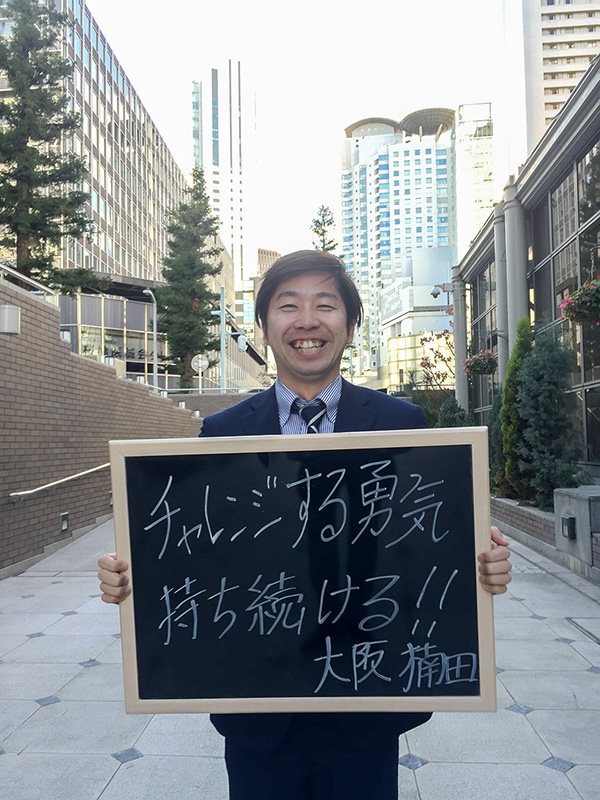 チャレンジする勇気
持ち続ける!!
大阪 楠田